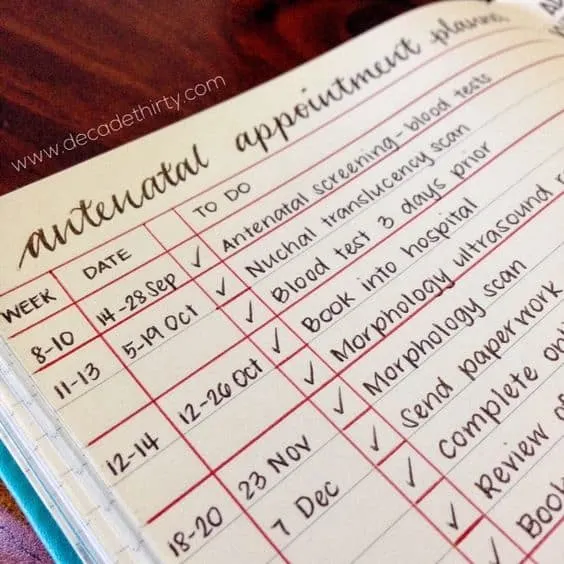 www.decadethirty.com
antenatal appointment planner
WEEK DATE TO DO
8-10 14-28 Sep ✓ Antenatal screening - blood tests
11-13 5-19 Oct ✓ Nuchal translucency scan
✓ Blood test 3 days prior
12-14 12-26 Oct ✓ Book into hospital
✓ Morphology ultrasound
18-20 23 Nov ✓ Morphology scan
7 Dec ✓ Send paperwork
✓ Complete
✓ Review
✓ Book